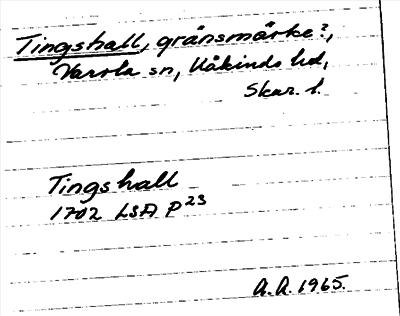 Tingshall, gränsmärke?,
Varola sn, Kåkinds hd,
Skar. l.
Tingshall
1702 LSA P23
A.A. 1965.